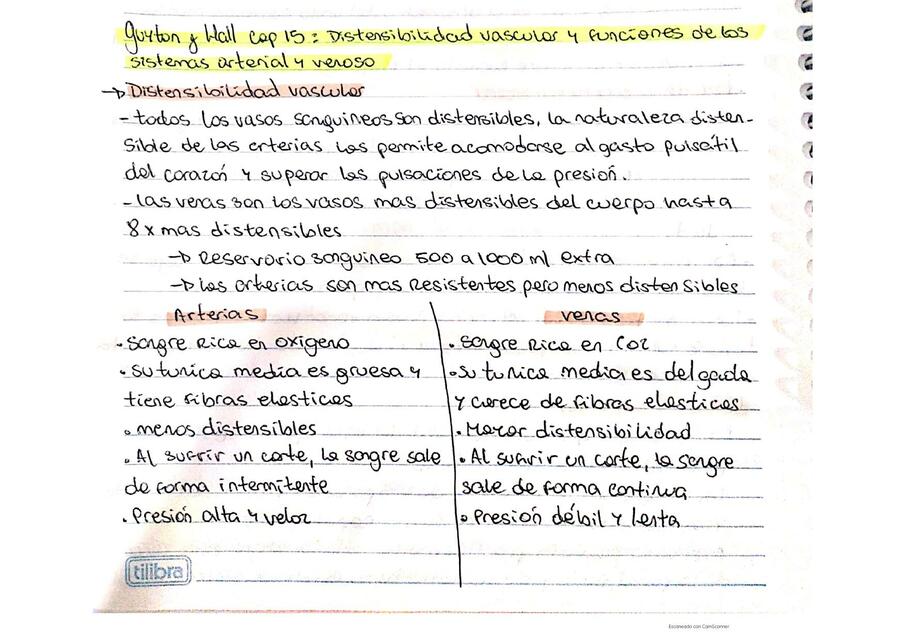 Guyton y Hall cap 15: Distensibilidad vascular y funciones de los
sistemas arterial y venoso
→ Distensibilidad vascular
- todos los vasos sanguineos son distensibles, la naturaleza disten-
sible de las arterias les permite acomodarse al gasto pulsátil
del corazón y superar las pulsaciones de la presión.
- las venas son los vasos mas distensibles del cuerpo hasta
8x mas distensibles
→ Reservorio sanguineo 500 a 1000 ml extra
→ las arterias son mas resistentes pero menos distensibles
Arterias
• Sangre rica en oxigeno
• su tunica media es gruesa y
tiene fibras elasticas
• menos distensibles
• Al sufrir un corte, la sangre sale
de forma intermitente
• Presión alta y veloz
venas
• Sangre rica en CO2
• su tunica media es delgada
y carece de fibras elasticas
• Mayor distensibilidad
• Al sufrir un corte, la sangre
sale de forma continua
• Presión débil y lenta
tilibra
Escaneado con CamScanner